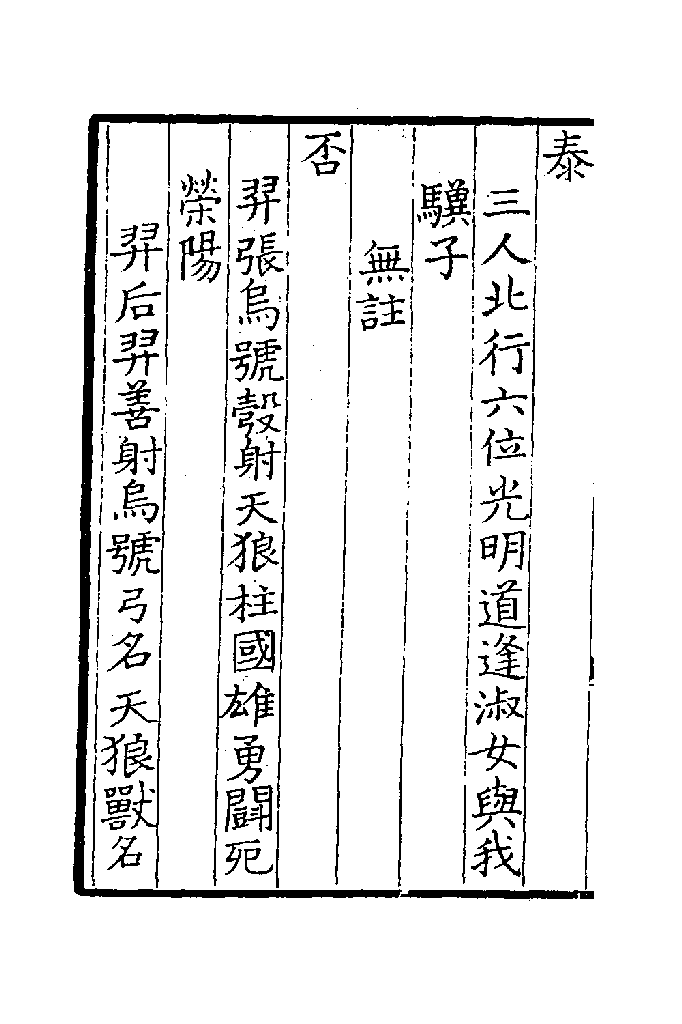 泰
三人北行六位光明道逢淑女與我
驥子
無註
否
羿張烏號彀射天狼柱國雄勇鬬死
榮陽
羿后羿善射烏號弓名天狼獸名